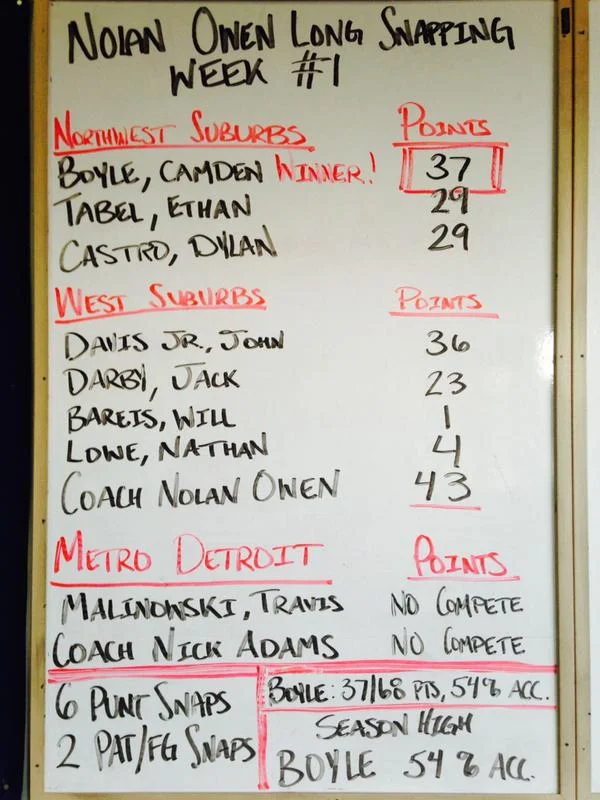 NOLAN OWEN LONG SNAPPING
WEEK #1
NORTHWEST SUBURBS POINTS
BOYLE, CAMDEN WINNER! 37
TABEL, ETHAN 29
CASTRO, DYLAN 29
WEST SUBURBS POINTS
DAVIS JR., JOHN 36
DARBY, JACK 23
BAREIS, WILL 1
LOWE, NATHAN 4
COACH NOLAN OWEN 43
METRO DETROIT POINTS
MALINOWSKI, TRAVIS NO COMPETE
COACH NICK ADAMS NO COMPETE
6 PUNT SNAPS
2 PAT/FG SNAPS
BOYLE: 37/68 PTS, 54% ACC.
SEASON HIGH
BOYLE 54% ACC.